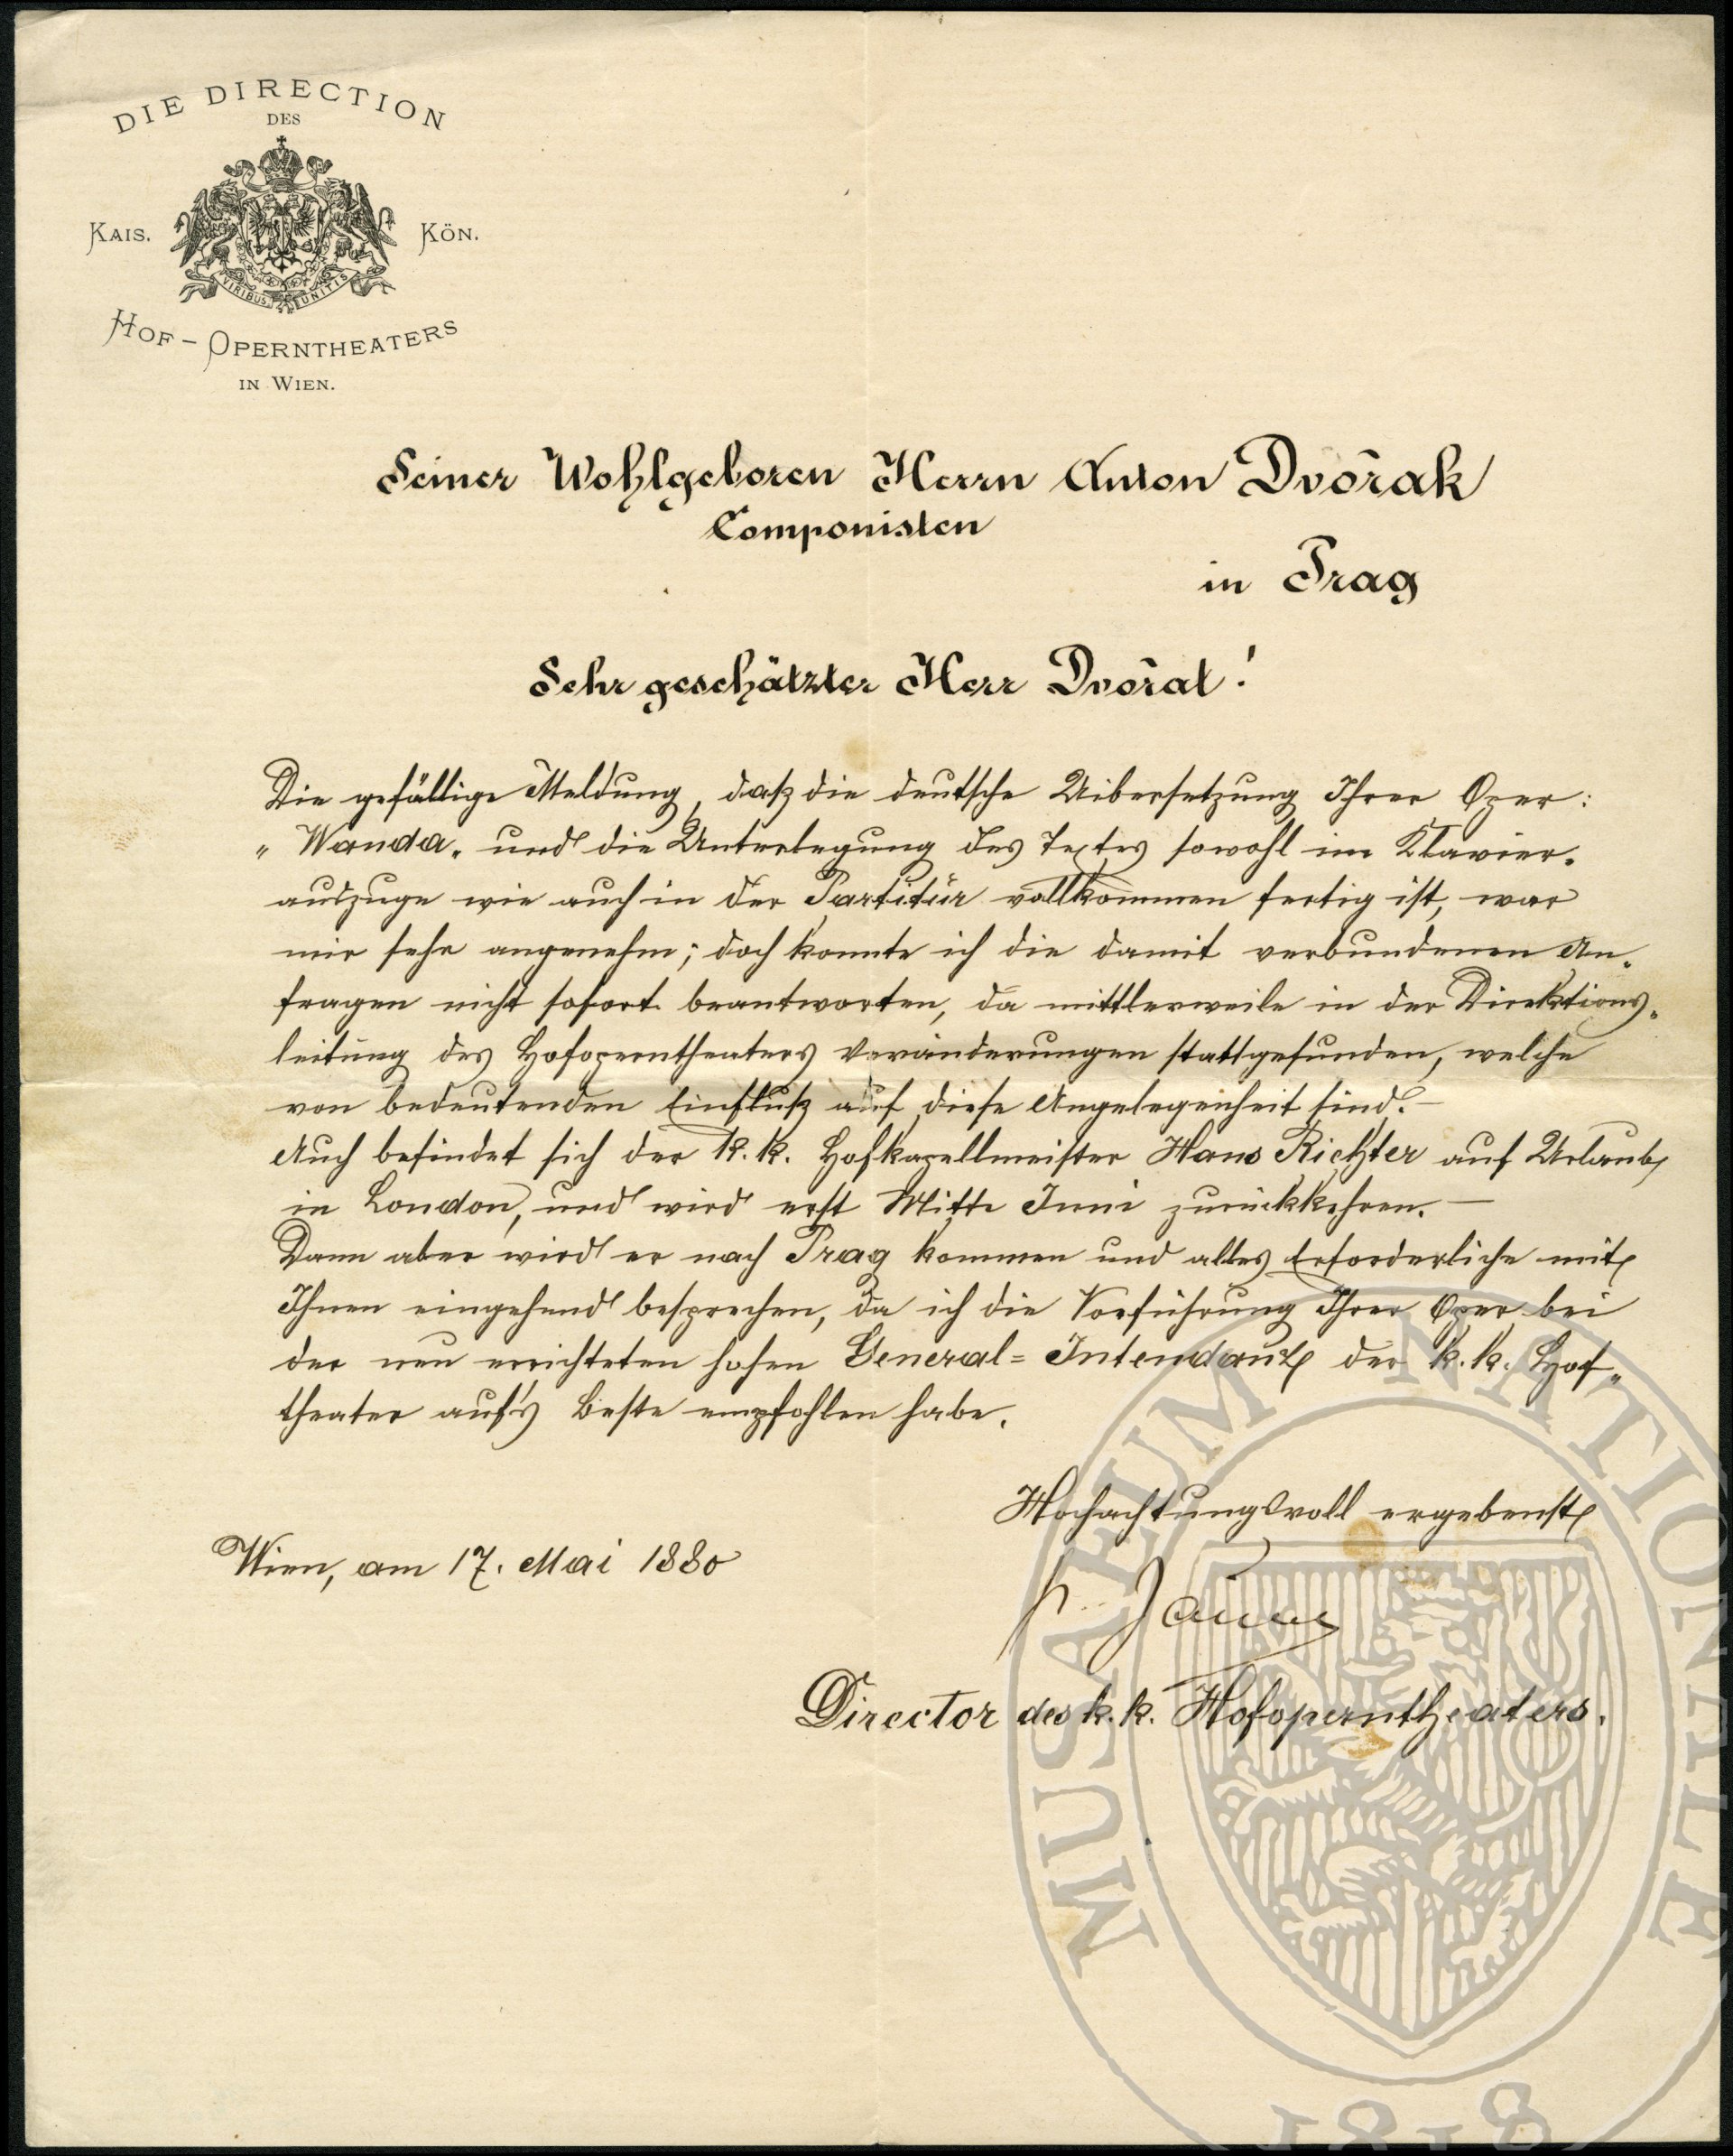 DIE DIRECTION
DES
KAIS. KÖN.
VIRIBUS UNITIS
HOF-OPERNTHEATERS
IN WIEN.
Seiner Wohlgeboren Herrn Anton Dvořak
Componisten
in Prag
Sehr geschätzter Herr Dvořak!
Die gefällige Meldung, daß die deutsche Uibersetzung Ihrer Oper:
"Wanda" und die Unterlegung des Textes sowohl im Klavier-
auszuge wie auch in der Partitur vollkommen fertig ist, war
mir sehr angenehm; doch konnte ich die damit verbundenen An-
fragen nicht sofort beantworten, da mittlerweile in der Direktions-
leitung des Hofoperntheaters Veränderungen stattgefunden, welche
von bedeutenden Einfluß auf diese Angelegenheit sind.–
Auch befindet sich der k. k. Hofkapellmeister Hans Richter auf Urlaub
in London, und wird erst Mitte Juni zurückkehren.–
Dann aber wird er nach Prag kommen und alles Erforderliche mit
Ihnen eingehend besprechen, da ich die Vorführung Ihrer Oper bei
der neu errichteten hohen General=Intendanz der k. k. Hof-
theater auf's Beste empfohlen habe.
Hochachtungsvoll ergebenst
Wien, am 17. Mai 1880
Jauner
Director des k. k. Hofoperntheaters.
MUSAEUM NATIONALE
1818